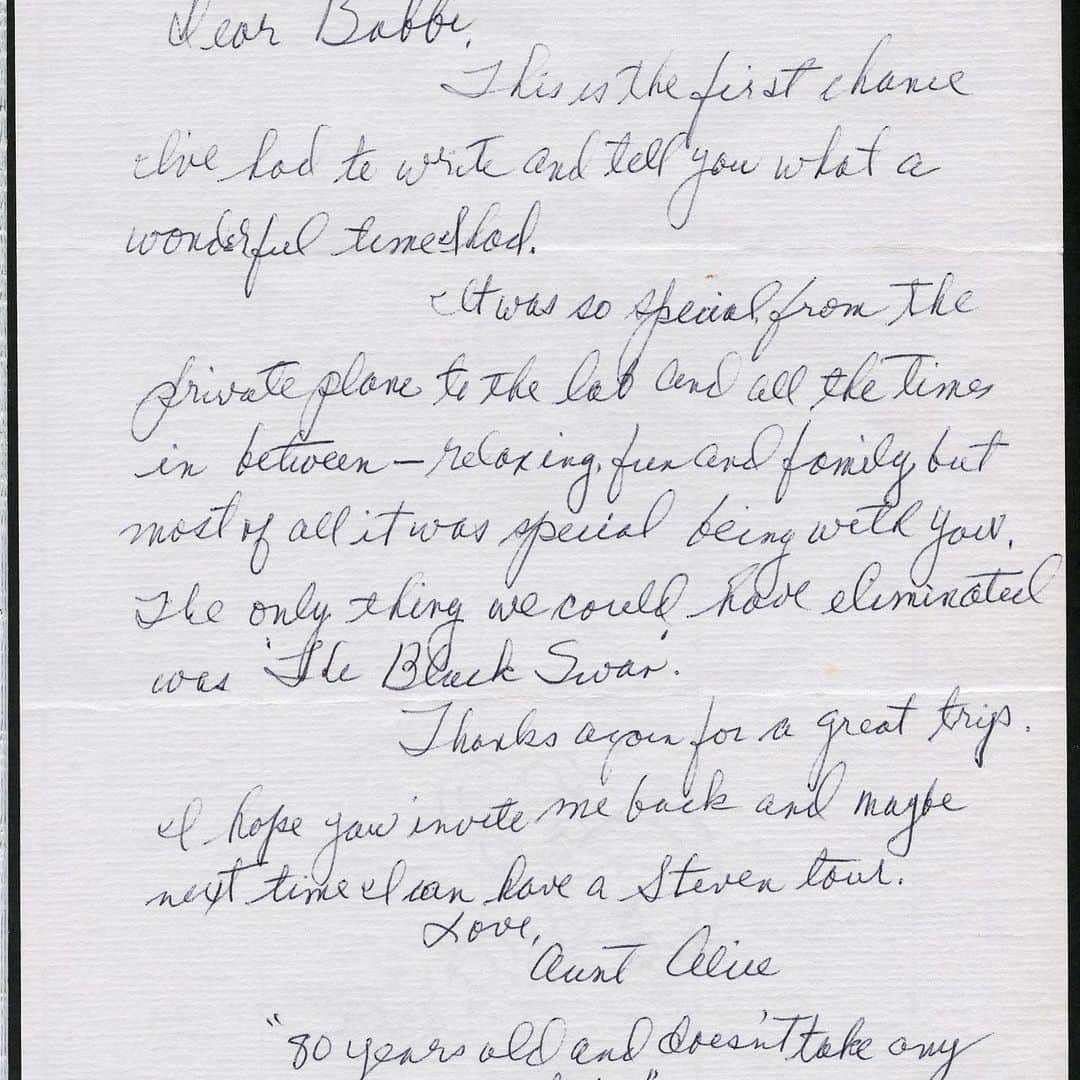 Dear Bobbi,
This is the first chance
I've had to write and tell you what a
wonderful time I had.
It was so special, from the
private plane to the lab and all the times
in between — relaxing, fun and family, but
most of all it was special being with you.
The only thing we could have eliminated
was 'The Black Swan'.
Thanks again for a great trip.
I hope you invite me back and maybe
next time I can have a Steven tour.
Love,
Aunt Alice
"80 years old and doesn't take any